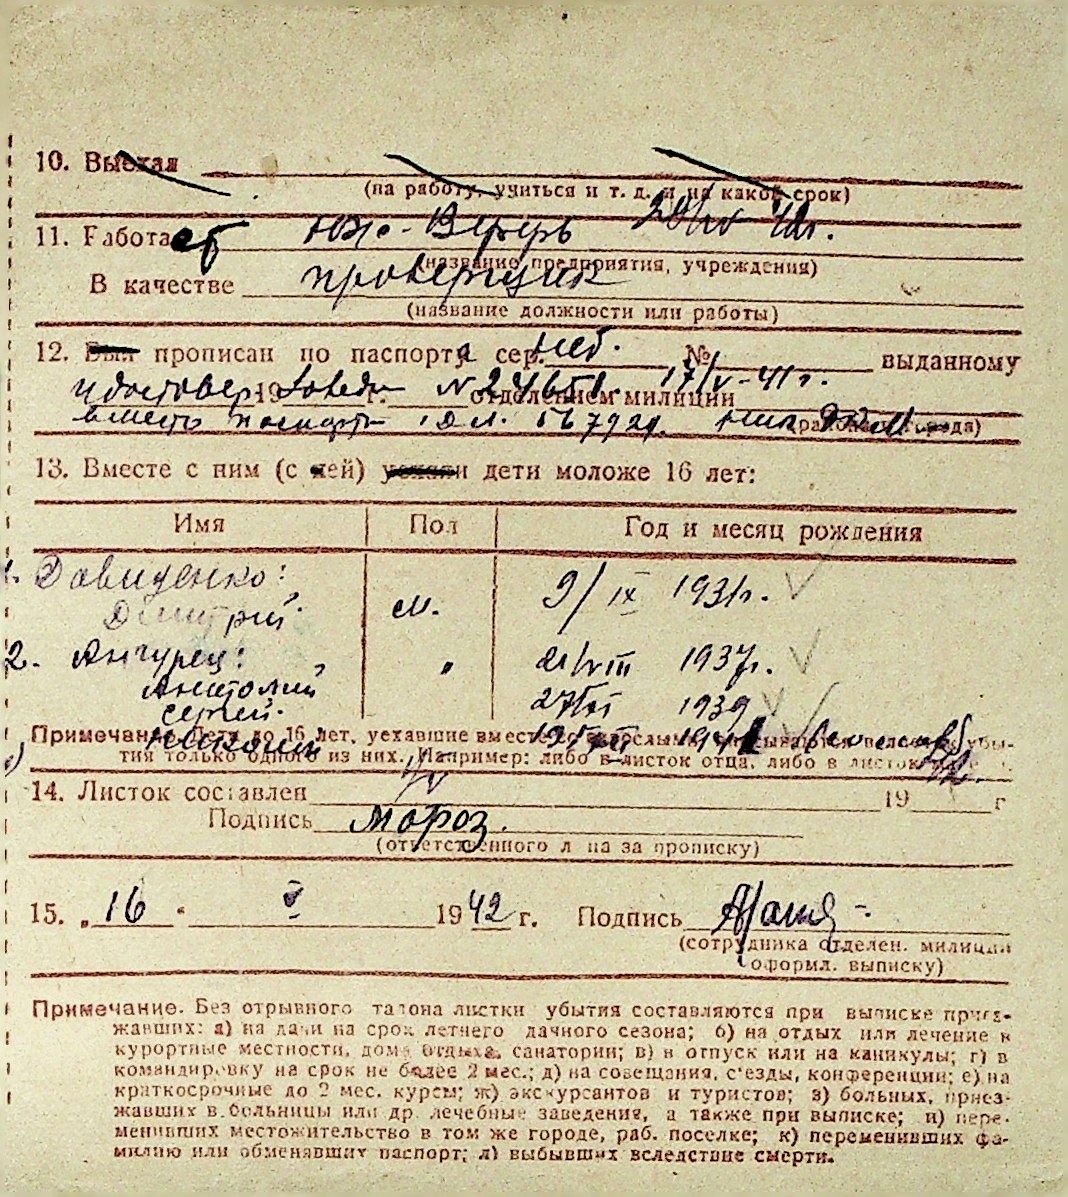 10. Выехал
(на работу, учиться и т. д. и на какой срок)
11. Работает Юж-Верфь 28/IV 42г.
(название предприятия, учреждения)
В качестве проверщик
(название должности или работы)
12. Был прописан по паспорту сер. № выданному
удостовер. 19 г. № отделением милиции 17/V-41г.
вместо паспорта
13. Вместе с ним (с ней) уехали дети моложе 16 лет:
Имя Пол Год и месяц рождения
1. Давиденко:
Дмитрий м. 9/IX 1931г.
2. Ангурец: " 21/VIII 1937г.
Анатолий
Сергей 1939
Николай
Примечание. Дети до 16 лет, уехавшие вместе со взрослыми,
тия только одного из них. Например: либо в листок отца, либо в листок
14. Листок составлен 19 г
Подпись Мороз.
(ответственного лица за прописку)
15. „16" V 1942 г. Подпись
(сотрудника отделен. милиции
оформл. выписку)
Примечание. Без отрывного талона листки убытия составляются при выписке приез-
жавших: а) на дачи на срок летнего дачного сезона; б) на отдых или лечение в
курортные местности, дома отдыха, санатории; в) в отпуск или на каникулы; г) в
командировку на срок не более 2 мес.; д) на совещания, с'езды, конференции; е) на
краткосрочные до 2 мес. курсы; ж) экскурсантов и туристов; з) больных, приез-
жавших в больницы или др. лечебные заведения, а также при выписке; и) пере-
менивших местожительство в том же городе, раб. поселке; к) переменивших фа-
милию или обменявших паспорт; л) выбывших вследствие смерти.